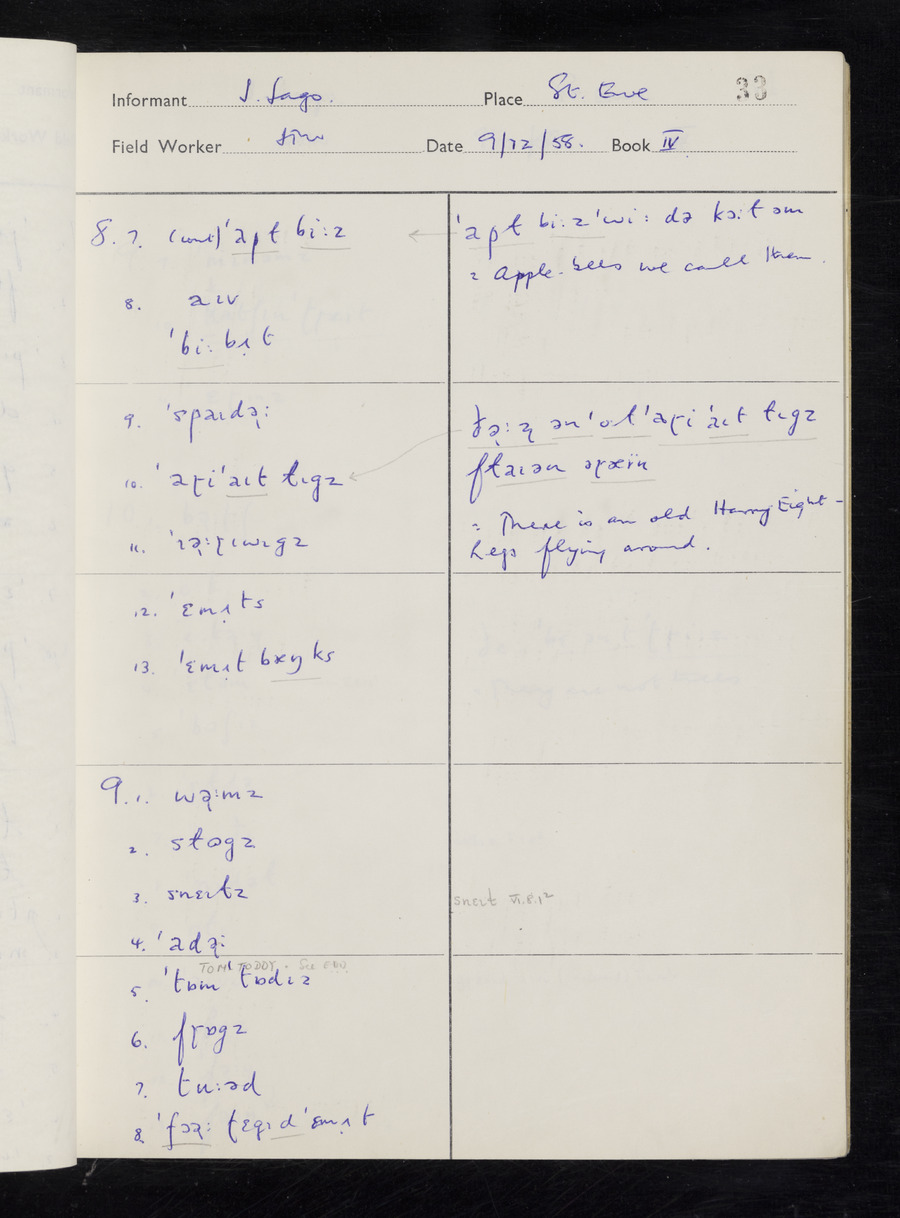 33
Informant J. Sago. Place St. Ewe
Field Worker Date 9/12/58. Book IV
8. 7. (cont) 'apɫ bi:z
'apɫ bi:z 'wi: də kɔ:ɫ əm
= Apple-bees we call them.
8. aɪv
'bi:bɪt
9. 'spaɪdə̢:
10. 'aɽi'aɪt lɪgz
11. 'ɪə̢:ɽɪwɪgz
ðə̢:z ən 'oɫ 'aɽi 'aɪt lɪgz
flaɪən əɽæʏn
= There is an old Harry-Eight-
Legs flying around.
12. 'ɛmɪts
13. 'ɛmɪt bæŋks
9. 1. wə̢:mz
2. slɒgz
3. snɛɪlz
snɛɪl VI.8.12
4. 'adə̢:
TOM TODDY. See EDD
5. 'tɒm 'tɒdɪz
6. fɽɒgz
7. tu:əd
8. 'fɔə̢: lɛgɪd 'ɛmɪt